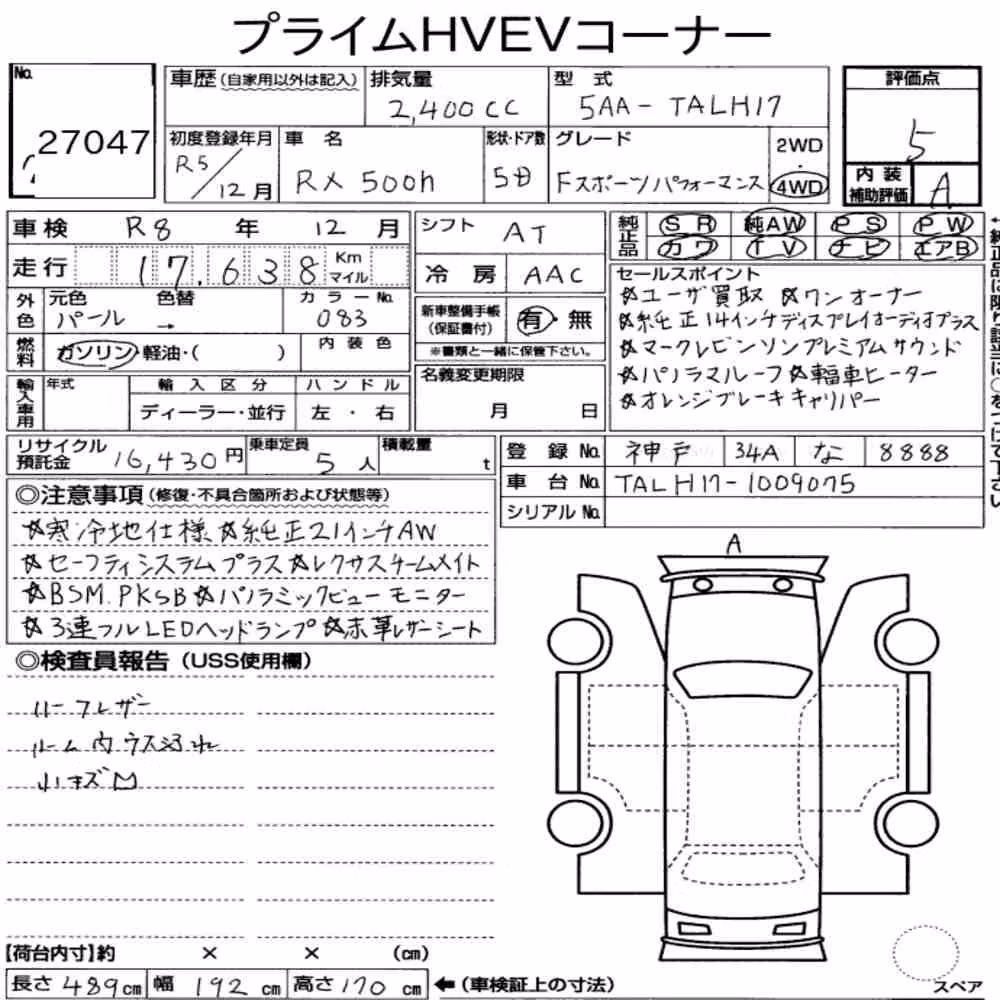 プライムHVEVコーナー
No. 27047
車歴 (自家用以外は記入)
排気量 2,400CC
型式 5AA-TALH17
評価点 5
初度登録年月 R5/12月
車名 RX 500h
形状・ドア数 5D
グレード Fスポーツパフォーマンス
2WD
4WD
内装補助評価 A
車検 R8 年 12 月
走行 17,638 Km マイル
シフト AT
冷房 AAC
純正品 SR 純AW PS PW
カワ TV ナビ エアB
外色 元色 色替 カラーNo.
パール → 083
燃料 ガソリン・軽油・( ) 内装色
新車整備手帳(保証書付) 有・無
※書類と一緒に保管下さい。
セールスポイント
☆ユーザ買取 ☆ワンオーナー
☆純正14インチディスプレイオーディオプラス
☆マークレビンソンプレミアムサウンド
☆パノラマルーフ☆輻車ヒーター
☆オレンジブレーキキャリパー
輸入車用 年式 輸入区分 ハンドル
ディーラー・並行 左・右
名義変更期限
月 日
リサイクル預託金 16,430円
乗車定員 5人
積載量 t
登録No. 神戸 34A な 8888
車台No. TALH17-1009075
シリアルNo.
◎注意事項 (修復・不具合箇所および状態等)
☆寒冷地仕様☆純正21インチAW
☆セーフティシステムプラス☆レクサスチームメイト
☆BSM.PKSB☆パノラミックビューモニター
☆3連フルLEDヘッドランプ☆赤革レザーシート
◎検査員報告 (USS使用欄)
ハーフレザー
ルーム内ウス汚れ
小キズ
A
【荷台内寸】約 × × (cm)
長さ 489cm 幅 192cm 高さ 170cm ←(車検証上の寸法)
スペア